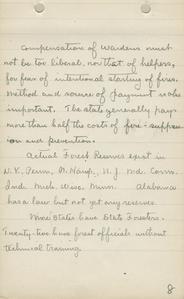 Compensation of Wardens must
not be too liberal, nor that of helpers,
for fear of intentional starting of fires.
Method and source of payment role
important. The state generally pays
more than half the costs of fire suppres-
ion and prevention.
Actual Forest Reserves exist in
N.Y., Penn., N. Hamp., N. J. Md. Conn.
Ind. Mich. Wisc. Minn. Alabama
has a law but not yet any reserves.
Nine States have State Foresters.
Twenty-two have forest officials without
technical training
8